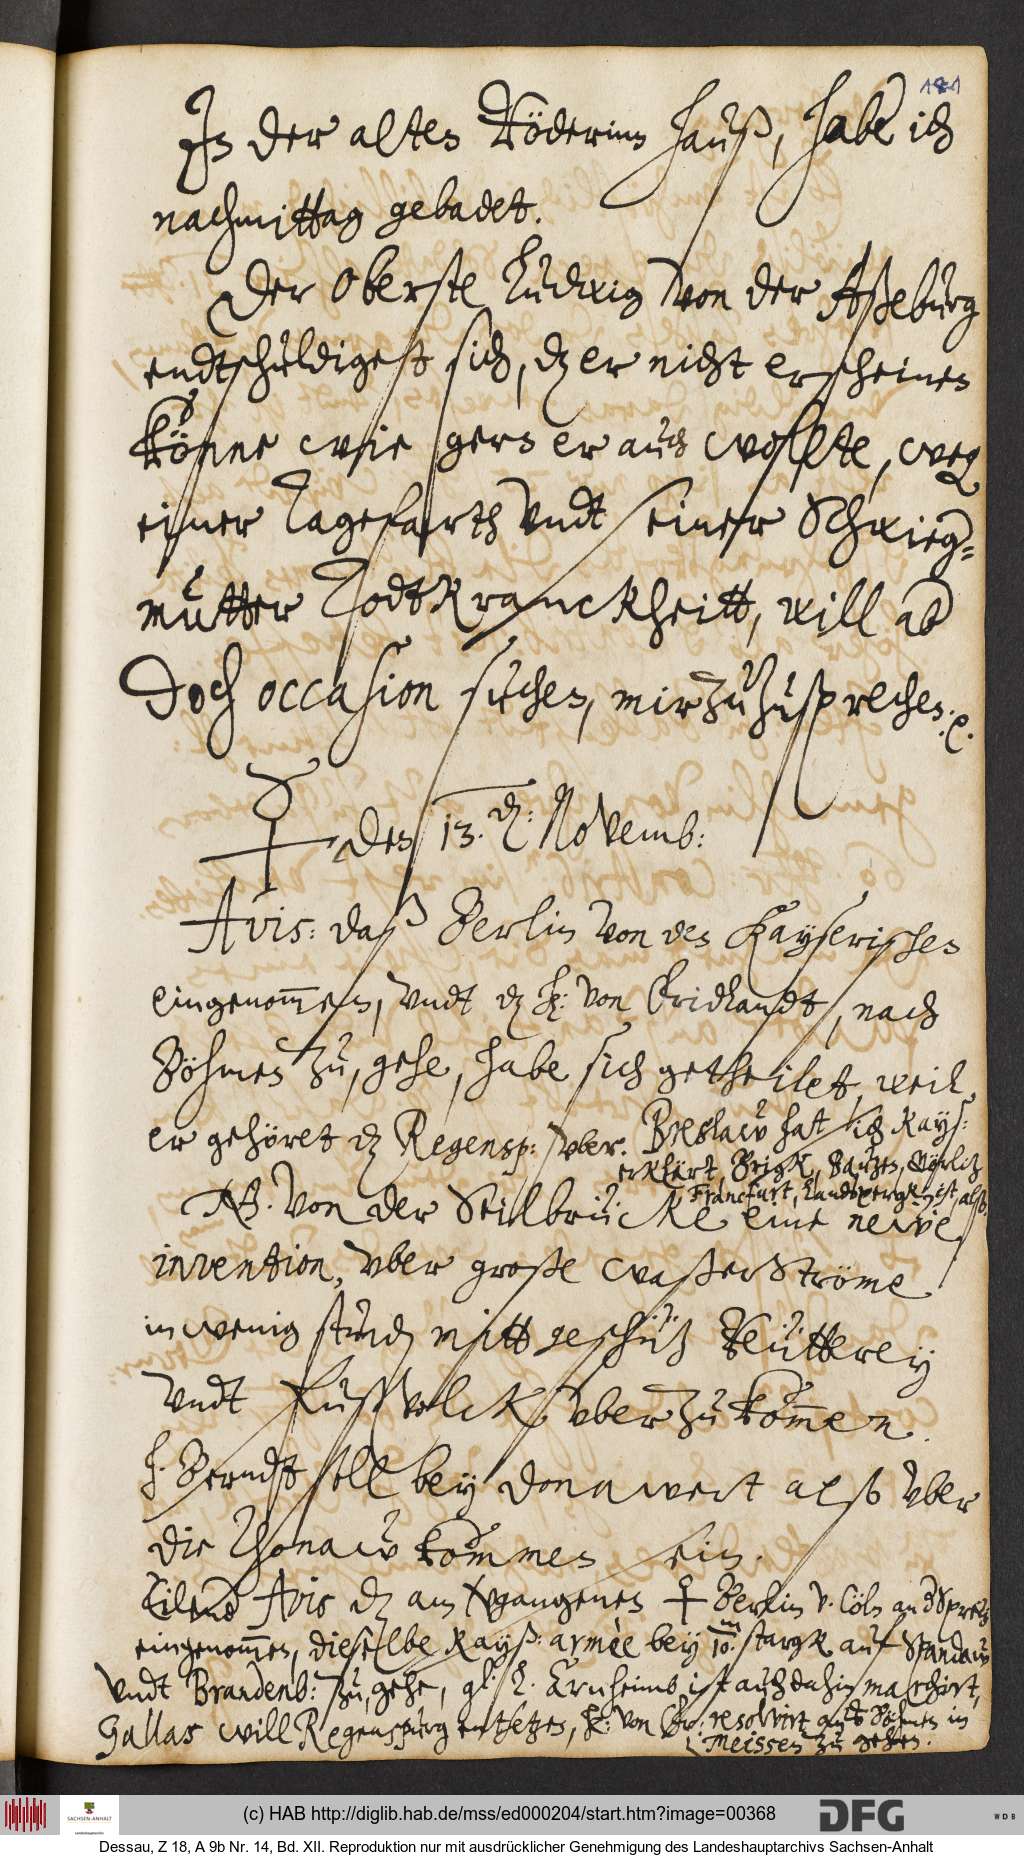 181
In der alten Röderinn hauß, habe ich
nachmittag gebadet.
Der Oberste Ludwig von der Aßeburg
endtschuldiget sich, dz er nicht erscheinen
könne wie gern er auch wollte, weg
einer Tagefarth vndt seiner Schwieg=
mutter Todtkranckheitt, will ab
doch occasion suchen, mir zuzusprechen. e.
den 13. d: Novemb:
Avis: daß Berlin von den Kayserischen
eingenom̅en, vndt dz H: von Fridlandt, nach
Böhmen zu, gehe, habe sich getheilet, weil
er gehöret dz Regensp: vber. Breslaw hat sich Kays:
erklärt, Brigk, Bautzen, Görlitz
Francfurt, Landspergk, ist alß.
NB. Von der Seilbrücke eine newe
invention, vber große waßerströme
in wenig stund mitt geschütz Reütterey
vndt Fußvolck vber zu kom̅en.
H. Berndt soll bey Donawert alß vber
die Thonaw kommen sein.
Eilend Avis dz am vergangenen Berlin v. Cöln an d Spreh
eingenom̅en, dieselbe Kayß: armèe bey 10. m starck auf Spandaw
vndt Brandenb: zu, gehe, gl: L. Arnheimb ist auch dahin marchirt,
Gallas will Regenspurg entsetzen, H: von Fr: resolvirt auß Böhmen in
Meissen zu gehen.
(c) HAB http://diglib.hab.de/mss/ed000204/start.htm?image=00368
SACHSEN-ANHALT
DFG
WDB
Dessau, Z 18, A 9b Nr. 14, Bd. XII. Reproduktion nur mit ausdrücklicher Genehmigung des Landeshauptarchivs Sachsen-Anhalt